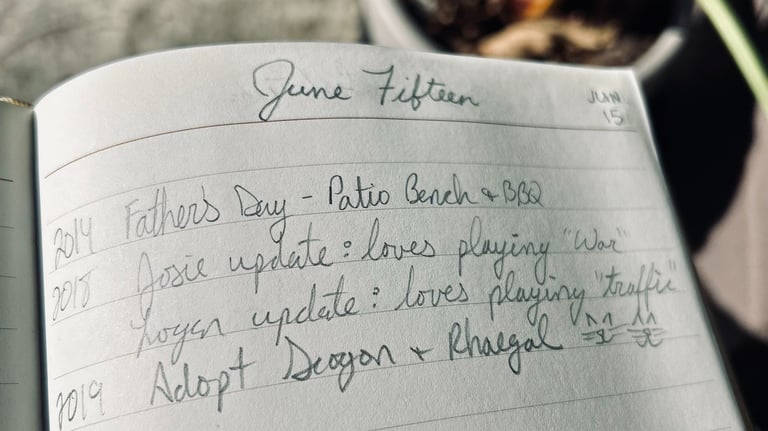 June Fifteen
JUN.
15
2014 Father's Day - Patio Bench & BBQ
2018 Josie update: loves playing "War"
Logan update: loves playing "traffic"
2019 Adopt Drogon + Rhaegal